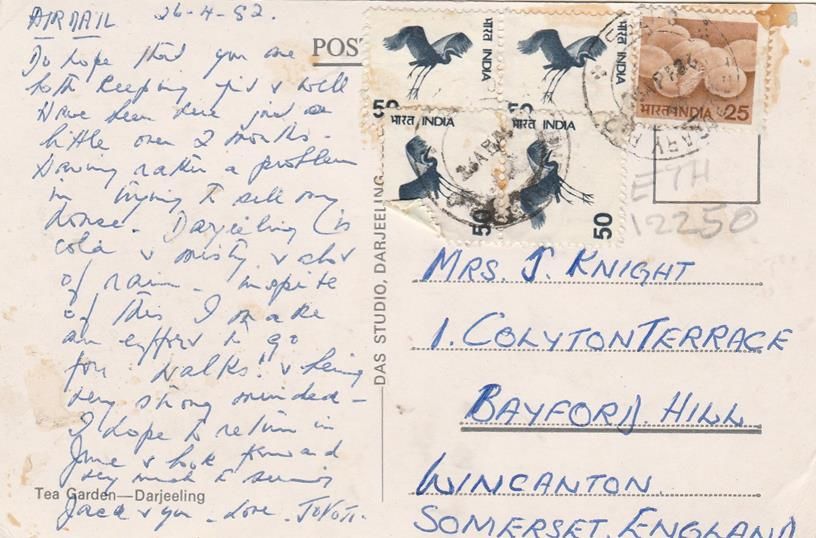 AIRMAIL 26-4-82.
Do hope that you are
both keeping fit & well
Have been here just a
little over 2 months.
Having rather a problem
in trying to sell my
house. Darjeeling is
cold & misty &
of rain - inspite
of this I make
an effort to go
for "walks" & being
very strong minded -
I hope to return in
June & look forward
very much to seeing
Jack & you - Love.
Tea Garden—Darjeeling
POST
DAS STUDIO, DARJEELING.
भारत INDIA
50
भारत INDIA
50
भारत INDIA 25
भारत INDIA
50
भारत INDIA
50
ETH
12250
MRS J. KNIGHT
1. COLYTON TERRACE
BAYFORD. HILL
WINCANTON.
SOMERSET. ENGLAND